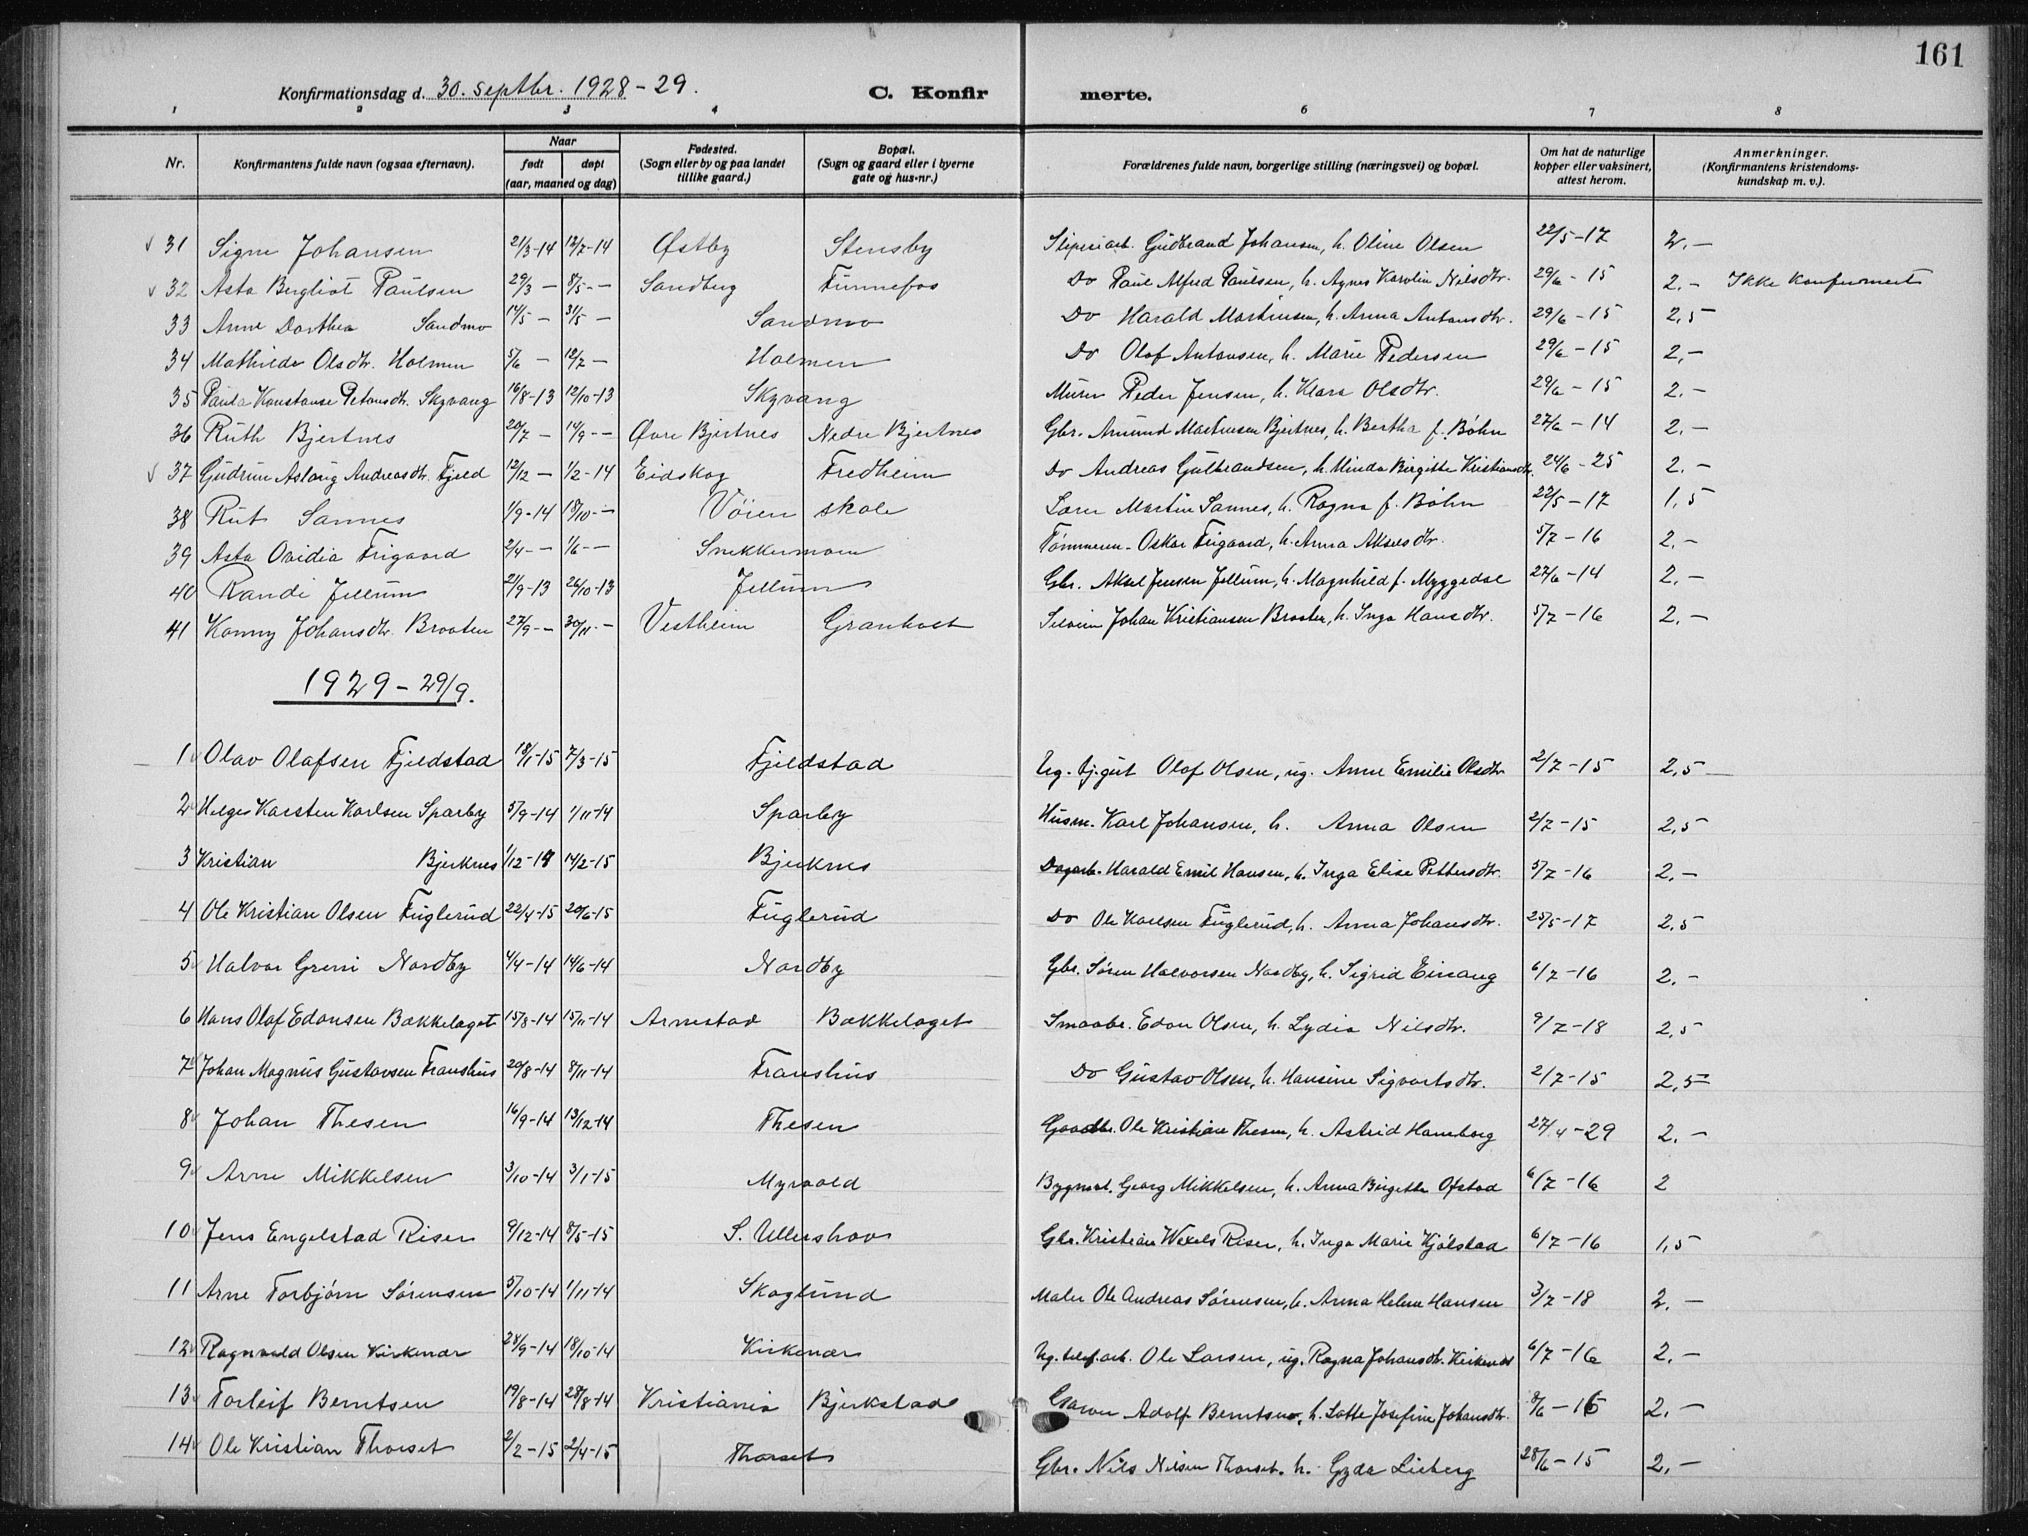 161
Konfirmationsdag d. 30. septbr. 1928-29. C. Konfir merte.
1 2 3 4 6 7 8
Nr. Konfirmantens fulde navn (ogsaa efternavn). Naar født døpt (aar, maaned og dag) Fødested. (Sogn eller by og paa landet tillike gaard.) Bopæl. (Sogn og gaard eller i byerne gate og hus-nr.) Forældrenes fulde navn, borgerlige stilling (næringsvei) og bopæl. Om hat de naturlige kopper eller vaksinert, attest herom. Anmerkninger. (Konfirmantens kristendoms-kundskap m. v.).
31 Signe Johansen 21/3-14 12/7-14 Østby Stensby Sliperiarb. Gudbrand Johansen, h. Oline Olsen 22/5-17 2.-
32 Asta Bergliot Paulsen 29/3 - 8/5 - Sandberg Funnefos Do Paul Alfred Paulsen, h. Agnes Karolin Nilsdtr. 29/6-15 2.- Ikke konfirmert
33 Anne Dorthea Sandmo 14/5 - 31/5 - Sandmo Do Harald Martinsen, h. Anna Antonsdtr. 29/6-15 2,5
34 Mathilde Olsdtr. Holmen 5/6 - 12/7 - Holmen Do Olof Antonsen, h. Marie Pedersen 29/6-15 2,-
35 Paula Konstanse Petersdtr. Skyvang 16/8-13 12/10-13 Skyvang Murer Peder Jensen, h. Klara Olsdtr. 29/6-15 2.-
36 Ruth Bjertnes 20/7 - 14/9 - - Øvre Bjertnes Nedre Bjertnes Gbr. Amund Martinsen Bjertnes, h. Bertha f. Bøhn 27/6-14 2.-
37 Gudrun Aslaug Andreasdtr. Fjeld 12/12 - 1/2-14 Eidskog Fredheim Do Andreas Gulbrandsen, h. Minda Birgitte Kristiansdtr. 24/6-25 2.-
38 Rut Sannes 1/9-14 18/10 - - Vøien skole Lærer Martin Sannes, h. Ragna f. Bøhn 22/5-17 1,5
39 Asta Ovidia Frigaard 2/4 - - 1/6 - - Snekkermoen Tømmerm. Oskar Frigaard, h. Anna Akselsdtr. 5/7-16 2.-
40 Randi Jellum 21/9-13 26/10-13 Jellum Gbr. Aksel Jensen Jellum, h. Magnhild f. Myggedal 27/6-14 2.-
41 Konny Johansdtr. Brooten 27/9 - - 30/11 - Vestheim Granholt Johan Kristiansen Brooten, h. Inga Hansdtr. 5/7-16 2.-
1929 - 29/9.
1 Olav Olafsen Fjeldstad 18/1-15 7/3-15 Fjeldstad Ug. bj.gut Olof Olsen, ug. Anne Emilie Olsdtr 2/7-15 2,5
2 Helge Karsten Karlsen Sparby 5/9-14 1/11-14 Sparby Husm. Karl Johansen, h. Anna Olsen 2/7-15 2,5
3 Kristian Bjerknes 1/12-14 14/2-15 Bjerknes Dagarb. Harald Emil Hansen, h. Inga Elise Pettersdtr. 5/7-16 2.-
4 Ole Kristian Olsen Fuglerud 22/4-15 20/6-15 Fuglerud Do Ole Karlsen Fuglerud, h. Anna Johansdtr. 25/5-17 2,5
5 Halvor Greni Nordby 4/4-14 14/6-14 Nordby Gbr. Søren Halvorsen Nordby, h. Sigrid Einang 6/7-16 2.-
6 Hans Olaf Edonsen Bakkelaget 15/8-14 15/11-14 Arnestad Bakkelaget Smaabr. Edon Olsen, h. Lydia Nilsdtr. 9/7-18 2,5
7 Johan Magnus Gustavsen Franshus 20/8-14 8/11-14 Franshus Do Gustav Olsen, h. Hansine Sigvartsdtr. 2/7-15 2,5
8 Johan Thesen 16/9-14 13/12-14 Thesen Gaardbr. Ole Kristian Thesen, h. Astrid Hamborg 27/4-29 2.-
9 Arne Mikkelsen 3/10-14 3/1-15 Myrvold Bygmest. Georg Mikkelsen, h. Anna Birgitte Ofstad 6/7-16 2
10 Jens Engelstad Riser 9/12-14 8/5-15 S. Ullershov Gbr. Kristian Wexels Riser, h. Inga Marie Kjølstad 6/7-16 1,5
11 Arne Torbjørn Sørensen 5/10-14 1/11-14 Skoglund Maler Ole Andreas Sørensen, h. Anna Helene Hansen 3/7-18 2.-
12 Ragnvald Olsen Kirkenær 28/9-14 18/10-14 Kirkenær Ug. telef.arb. Ole Larsen, ug. Ragna Johansdtr. Kirkenær 6/7-16 2.-
13 Torleif Berntsen 19/8-14 28/8-14 Kristiania Bjerkstad Garver Adolf Berntsen, h. Lotte Josefine Johansdtr. 8/6-16 2.-
14 Ole Kristian Thorset 2/2-15 2/4-15 Thorset Gbr. Nils Nilsen Thorset, h. Gyda Lieberg 28/6-15 2.-